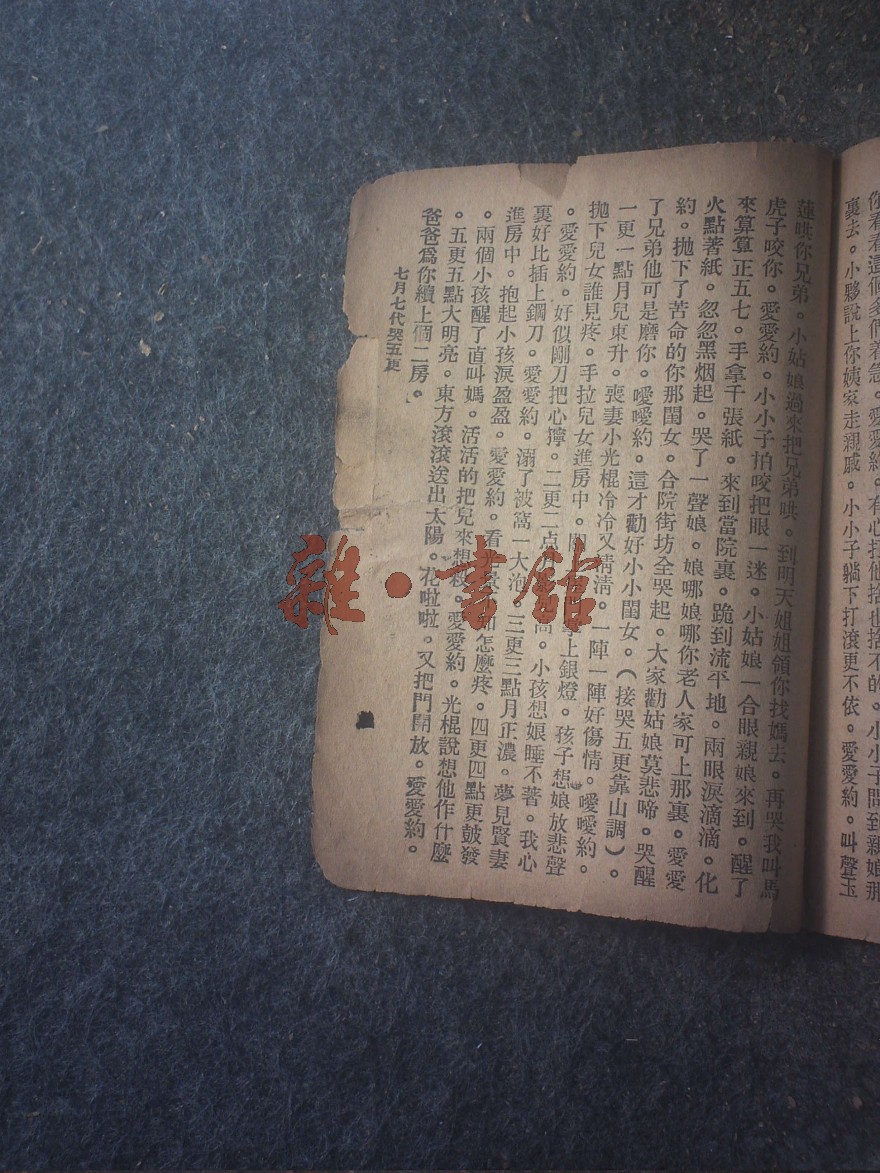 你看看這個多們着急。愛愛約。有心打他捨也捨不的。小小子問到親娘那
裏去。小夥說上你姨家走親戚。小小子躺下打滾更不依。愛愛約。叫聲玉
蓮哄你兄弟。小姑娘過來把兄弟哄。到明天姐姐領你找媽去。再哭我叫馬
虎子咬你。愛愛約。小小子怕咬把眼一迷。小姑娘一合眼親娘來到。醒了
來算算正五七。手拿千張紙。來到當院裏。跪到流平地。兩眼淚滴滴。化
火點著紙。忽忽黑烟起。哭了一聲娘。娘哪娘哪你老人家可上那裏。愛愛
約。拋下了苦命的你那閨女。合院街坊全哭起。大家勸姑娘莫悲啼。哭醒
了兄弟他可是磨你。噯噯約。這才勸好小小閨女。(接哭五更靠山調)。
一更一點月兒東升。喪妻小光棍冷冷又清清。一陣一陣好傷情。噯噯約。
拋下兒女誰見疼。手拉兒女進房中。上銀燈。孩子想娘放悲聲
。愛愛約。好似剛刀把心擰。二更二点。小孩想娘睡不著。我心
裏好比插上鋼刀。愛愛約。溺了被窩一大泡。三更三點月正濃。夢見賢妻
進房中。抱起小孩淚盈盈。愛愛約。看怎麼疼。四更四點更鼓發
。兩個小孩醒了直叫媽。活活的把兒來想殺。愛愛約。光棍說想他作什麼
。五更五點大明亮。東方滾滾送出太陽。花啦啦。又把門開放。愛愛約。
爸爸爲你續上個二房。
七月七代哭五更
雜·書館